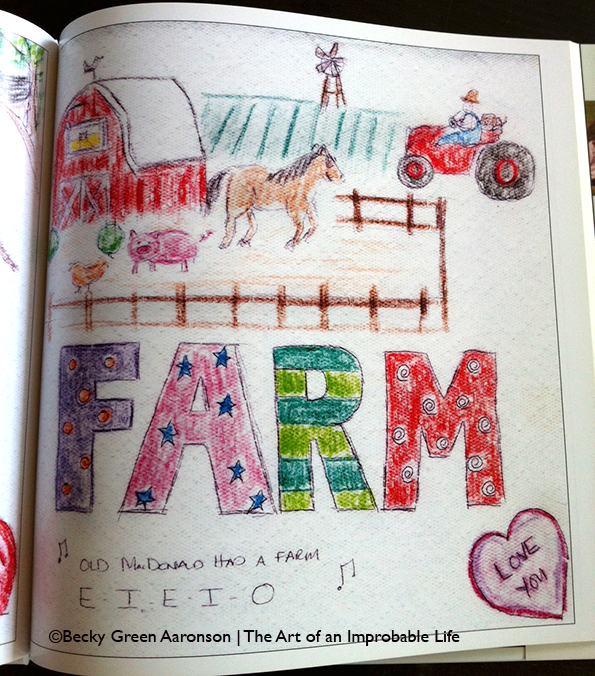 FARM
OLD MACDONALD HAD A FARM
E-I-E-I-O
LOVE
YOU
©Becky Green Aaronson | The Art of an Improbable Life